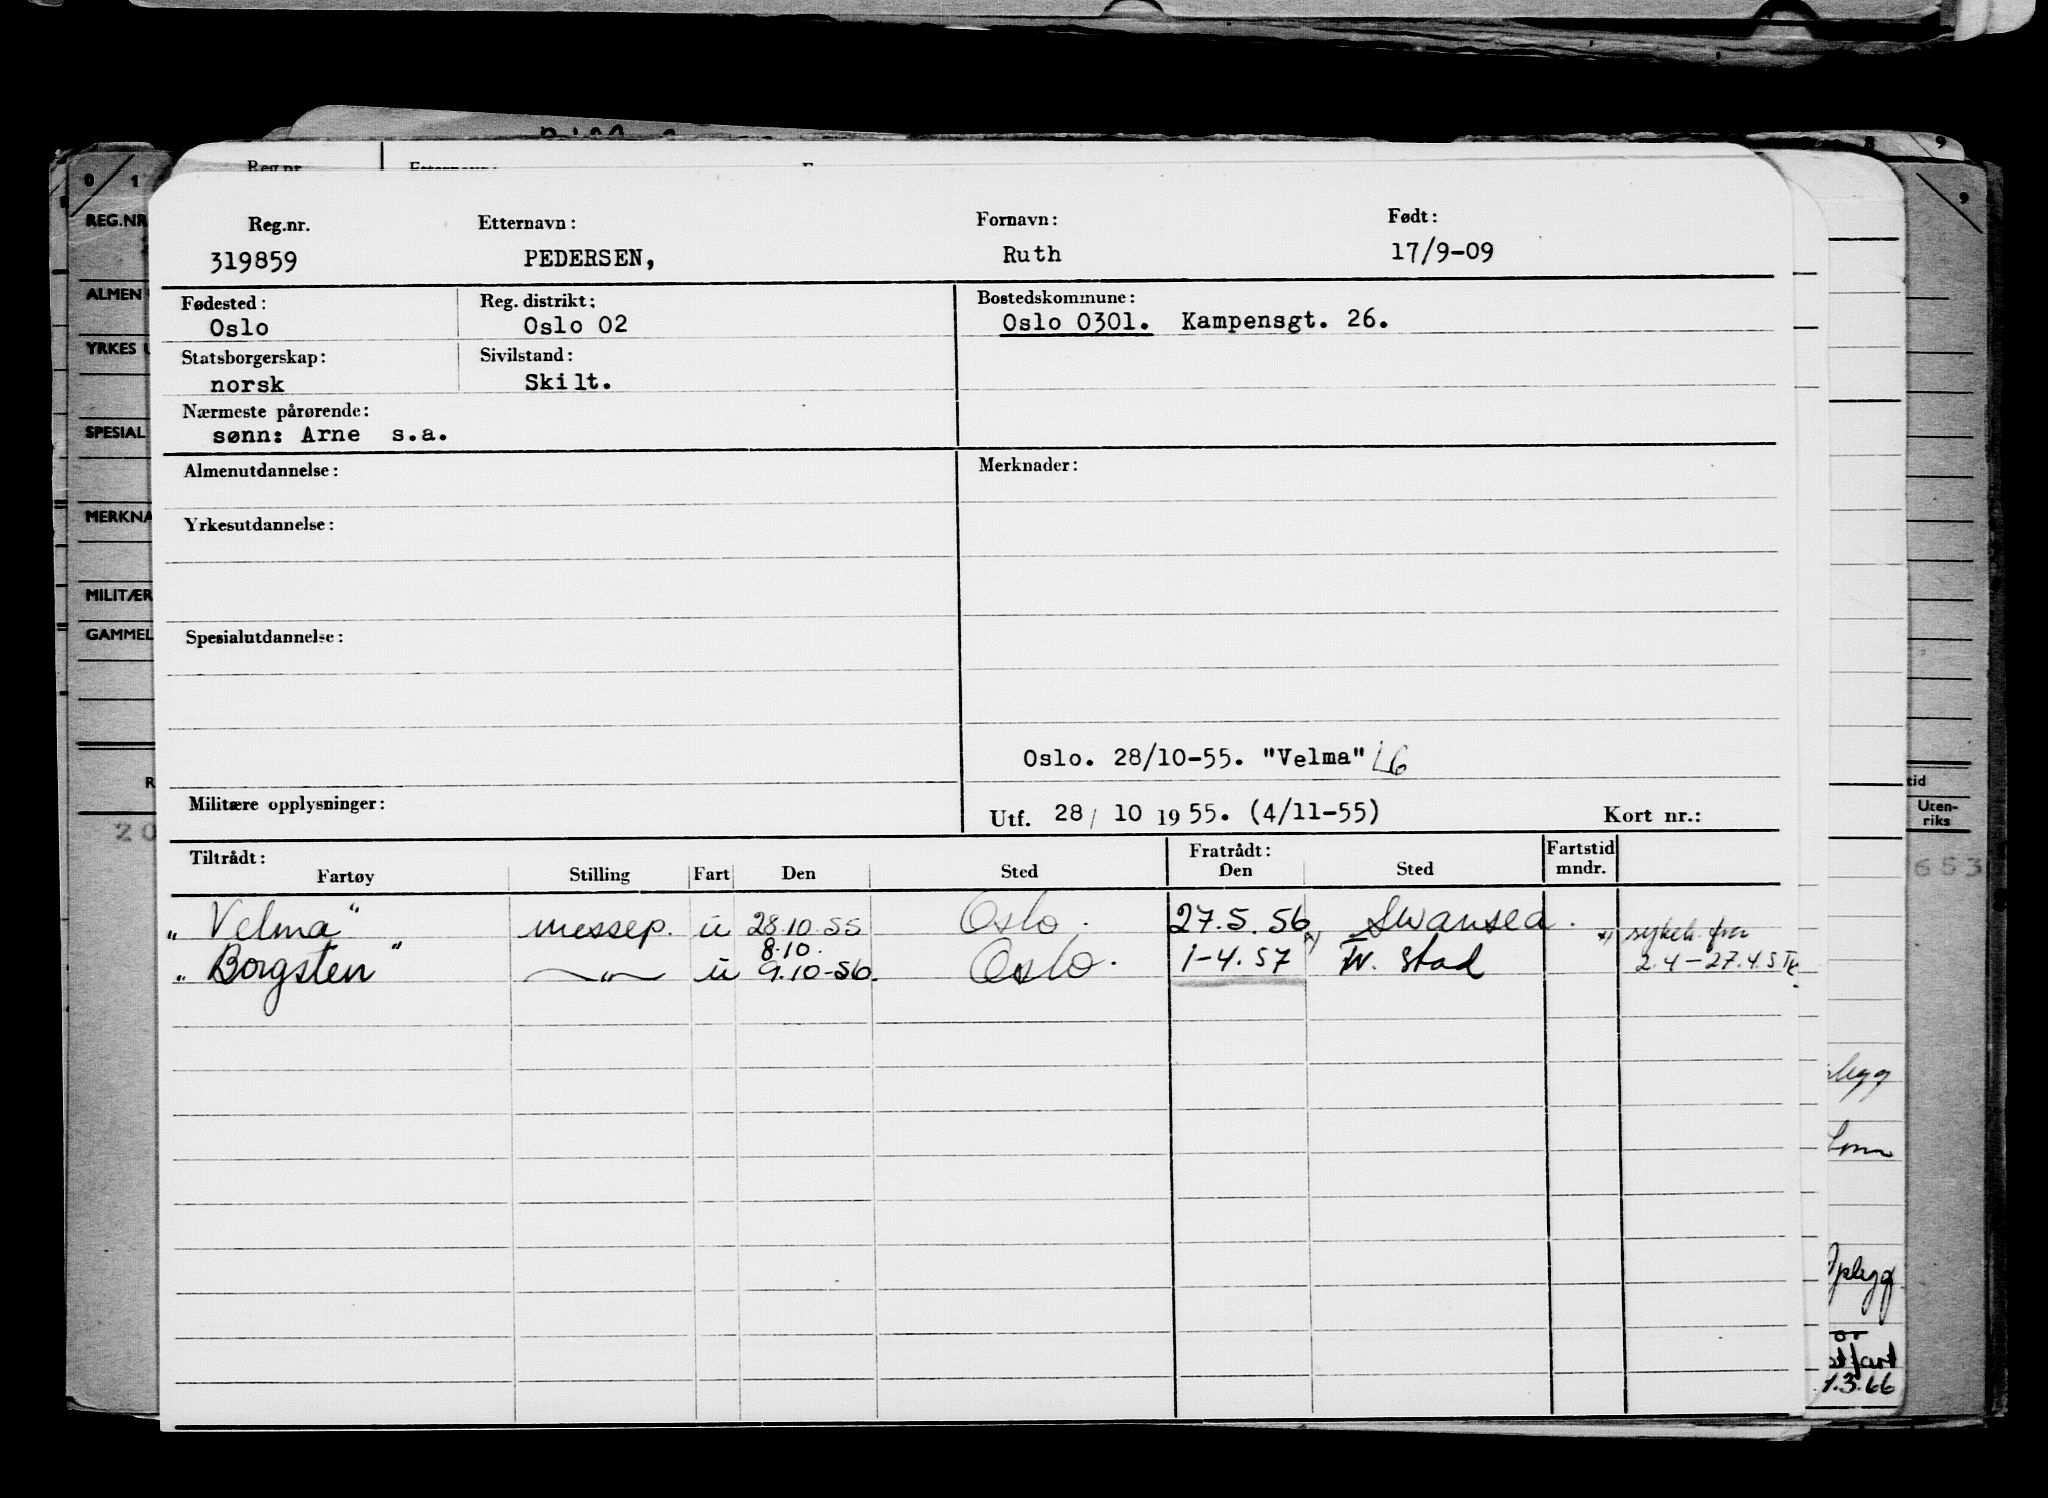 Reg.nr. Etternavn: Fornavn: Født:
319859 PEDERSEN, Ruth 17/9-09
Fødested: Reg. distrikt: Bostedskommune:
Oslo Oslo 02 Oslo 0301. Kampensgt. 26.
Statsborgerskap: Sivilstand:
norsk Skilt.
Nærmeste pårørende:
sønn: Arne s.a.
Almenutdannelse: Merknader:
Yrkesutdannelse:
Spesialutdannelse:
Oslo. 28/10-55. "Velma"
Militære opplysninger: Utf. 28/ 10 1955. (4/11-55) Kort nr.:
Tiltrådt: Fratrådt: Fartstid
Fartøy Stilling Fart Den Sted Den Sted mndr.
"Velma" messep. u 28.10.55 Oslo. 27.5.56 Swansea. x) sykeh. fra
8.10.
"Borgsten" —"— u 9.10-56. Oslo. 1-4.57 x) Fr. stad 2.4-27.4.57
REG.NR
ALMEN
YRKES U
SPESIAL
MERKNA
MILITÆR
GAMMEL
0 1
9
8 9
Reg.nr
tid
Uten-
riks
20
653
R
Opplegg
1.3.66